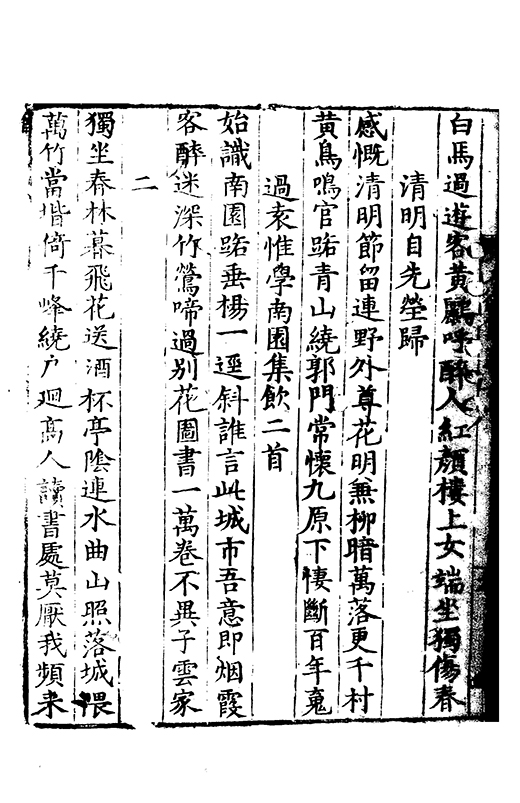 白馬過遊客黃鸝呼醉人紅顏樓上女端坐獨傷春
清明自先塋歸
感慨清明節留連野外尊花明兼柳暗萬落更千村
黃鳥鳴官路青山繞郭門常懷九原下悽斷百年䰟
過袁惟學南園集飲二首
始識南園路垂楊一逕斜誰言此城市吾意即烟霞
客醉迷深竹鶯啼過別花圖書一萬卷不異子雲家
二
獨坐春林暮飛花送酒杯亭陰連水曲山照落城隈
萬竹當堦倚千峰繞户廻高人讀書處莫厭我頻来